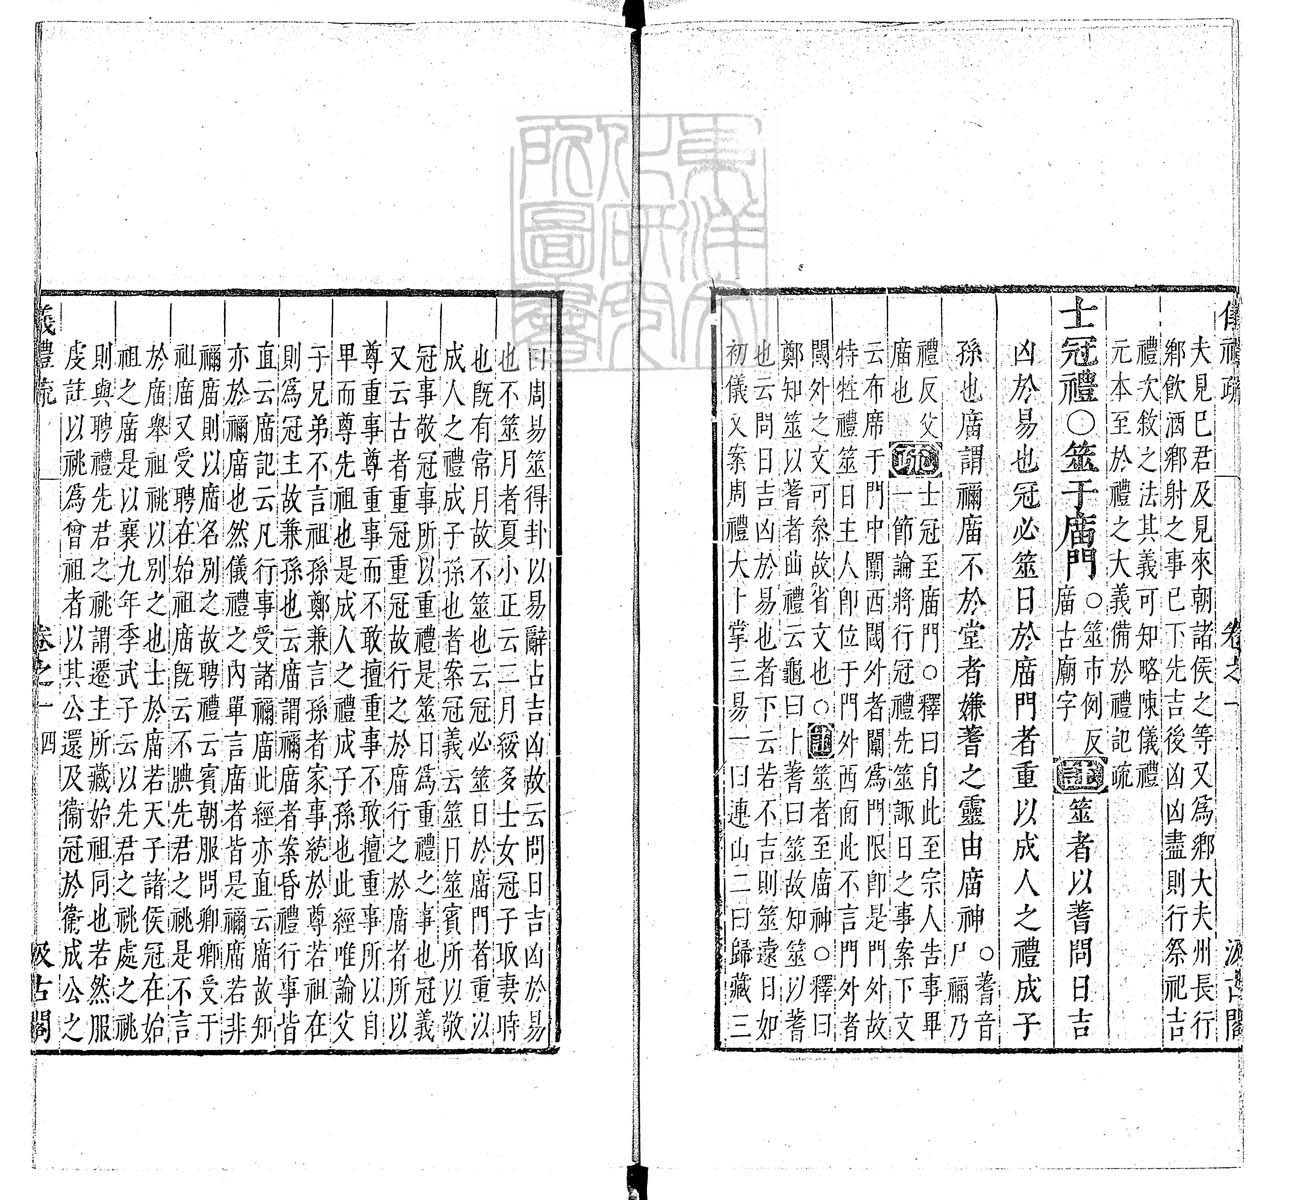 儀禮疏 卷之一 汲古閣
夫見已君及見來朝諸侯之等又爲鄉大夫州長行
鄉飲酒鄉射之事已下先吉後凶凶盡則行祭祀吉
禮次敘之法其義可知略陳儀禮
元本至於禮之大義備於禮記疏
士冠禮〇筮于廟門
〇筮市例反
廟古廟字
註筮者以蓍問日吉
凶於易也冠必筮日於廟門者重以成人之禮成子
孫也廟謂禰廟不於堂者嫌蓍之靈由廟神
〇蓍音
尸禰乃
禮反父
廟也
疏
士冠至廟門〇釋曰自此至宗人告事畢
一節論將行冠禮先筮諏日之事案下文
云布席于門中闑西閾外者闑爲門限卽是門外故
特牲禮筮日主人卽位于門外西面此不言門外者
閾外之文可參故省文也〇註筮者至廟神〇釋曰
鄭知筮以蓍者曲禮云龜曰卜蓍曰筮故知筮以蓍
也云問日吉凶於易也者下云若不吉則筮遠日如
初儀又案周禮大卜掌三易一曰連山二曰歸藏三
曰周易筮得卦以易辭占吉凶故云問日吉凶於易
也不筮月者夏小正云二月綏多士女冠子取妻時
也既有常月故不筮也云冠必筮日於廟門者重以
成人之禮成子孫也者案冠義云筮日筮賓所以敬
冠事敬冠事所以重禮是筮日爲重禮之事也冠義
又云古者重冠重冠故行之於廟行之於廟者所以
尊重事尊重事而不敢擅重事不敢擅重事所以自
卑而尊先祖也是成人之禮成子孫也此經唯論父
子兄弟不言祖孫鄭兼言孫者家事統於尊若祖在
則爲冠主故兼孫也云廟謂禰廟者案昏禮行事皆
直云廟記云凡行事受諸禰廟此經亦直云廟故知
亦於禰廟也然儀禮之內單言廟者皆是禰廟若非
禰廟則以廟名別之故聘禮云賓朝服問卿卿受于
祖廟又受聘在始祖廟既云不腆先君之祧是不言
於廟舉祖祧以別之也士於廟若天子諸侯冠在始
祖之廟是以襄九年季武子云以先君之祧處之祧
則與聘禮先君之祧謂遷主所藏始祖同也若然服
虔註以祧爲曾祖者以其公還及衞冠於衞成公之
儀禮疏 卷之一 四 汲古閣